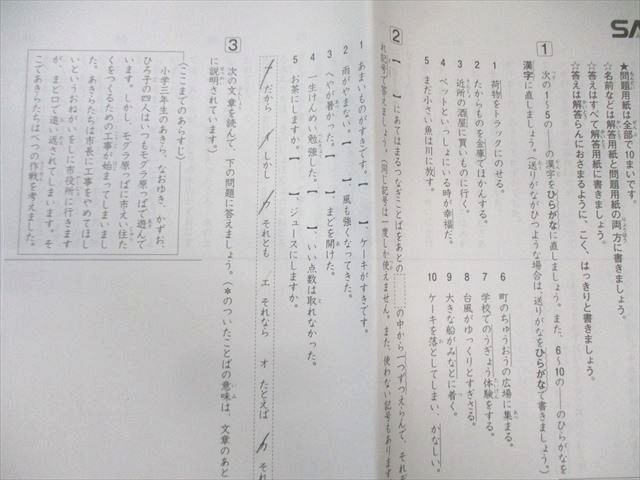 SA
★問題用紙は全部で10まいです。
☆名前などは解答用紙と問題用紙の両方に書きましょう。
☆答えはすべて解答用紙に書きましょう。
☆答えは解答らんにおさまるように、こく、はっきりと書きましょう。
1 次の1～5の――の漢字をひらがなに直しましょう。また、6～10の――のひらがなを
漢字に直しましょう。（送りがながひつような場合は、送りがなをひらがなで書きましょう。）
1 荷物をトラックにのせる。
2 たからものを金庫でほかんする。
3 近所の酒屋に買いものに行く。
4 ペットといっしょにいる時が幸福だ。
5 まだ小さい魚は川に放す。
6 町のちゅうおうの広場に集まる。
7 学校でのうぎょう体験をする。
8 台風がゆっくりとすぎさる。
9 大きな船がみなとに着く。
10 ケーキを落としてしまい、かなしい。
2 【 】にあてはまるつなぎことばをあとの の中から一つずつえらんで、それぞ
れ記号で答えましょう。（同じ記号は一度しか使えません。また、使わない記号もあります
1 あまいものがすきです。【 】、ケーキがすきです。
2 雨がやまない。【 】、風も強くなってきた。
3 へやが暑かった。【 】、まどを開けた。
4 一生けんめい勉強した。【 】、いい点数は取れなかった。
5 お茶にしますか。【 】、ジュースにしますか。
ア だから イ しかし ウ それとも エ それなら オ たとえば カ それ
3 次の文章を読んで、下の問題に答えましょう。（＊のついたことばの意味は、文章のあと
に説明されています。）
（ここまでのあらすじ）
小学三年生のあきら、なおゆき、かずお、
ひろ子の四人はいつもモグラ原っぱで遊んで
います。しかし、モグラ原っぱに市えい住た
くをつくるための工事が始まってしまいまし
た。あきらたちは市長に工事をやめてほし
いというおねがいをしに市役所に行きます
が、まど口で追い返されてしまいます。そ
こであきらたちはべつの作戦を考えました。